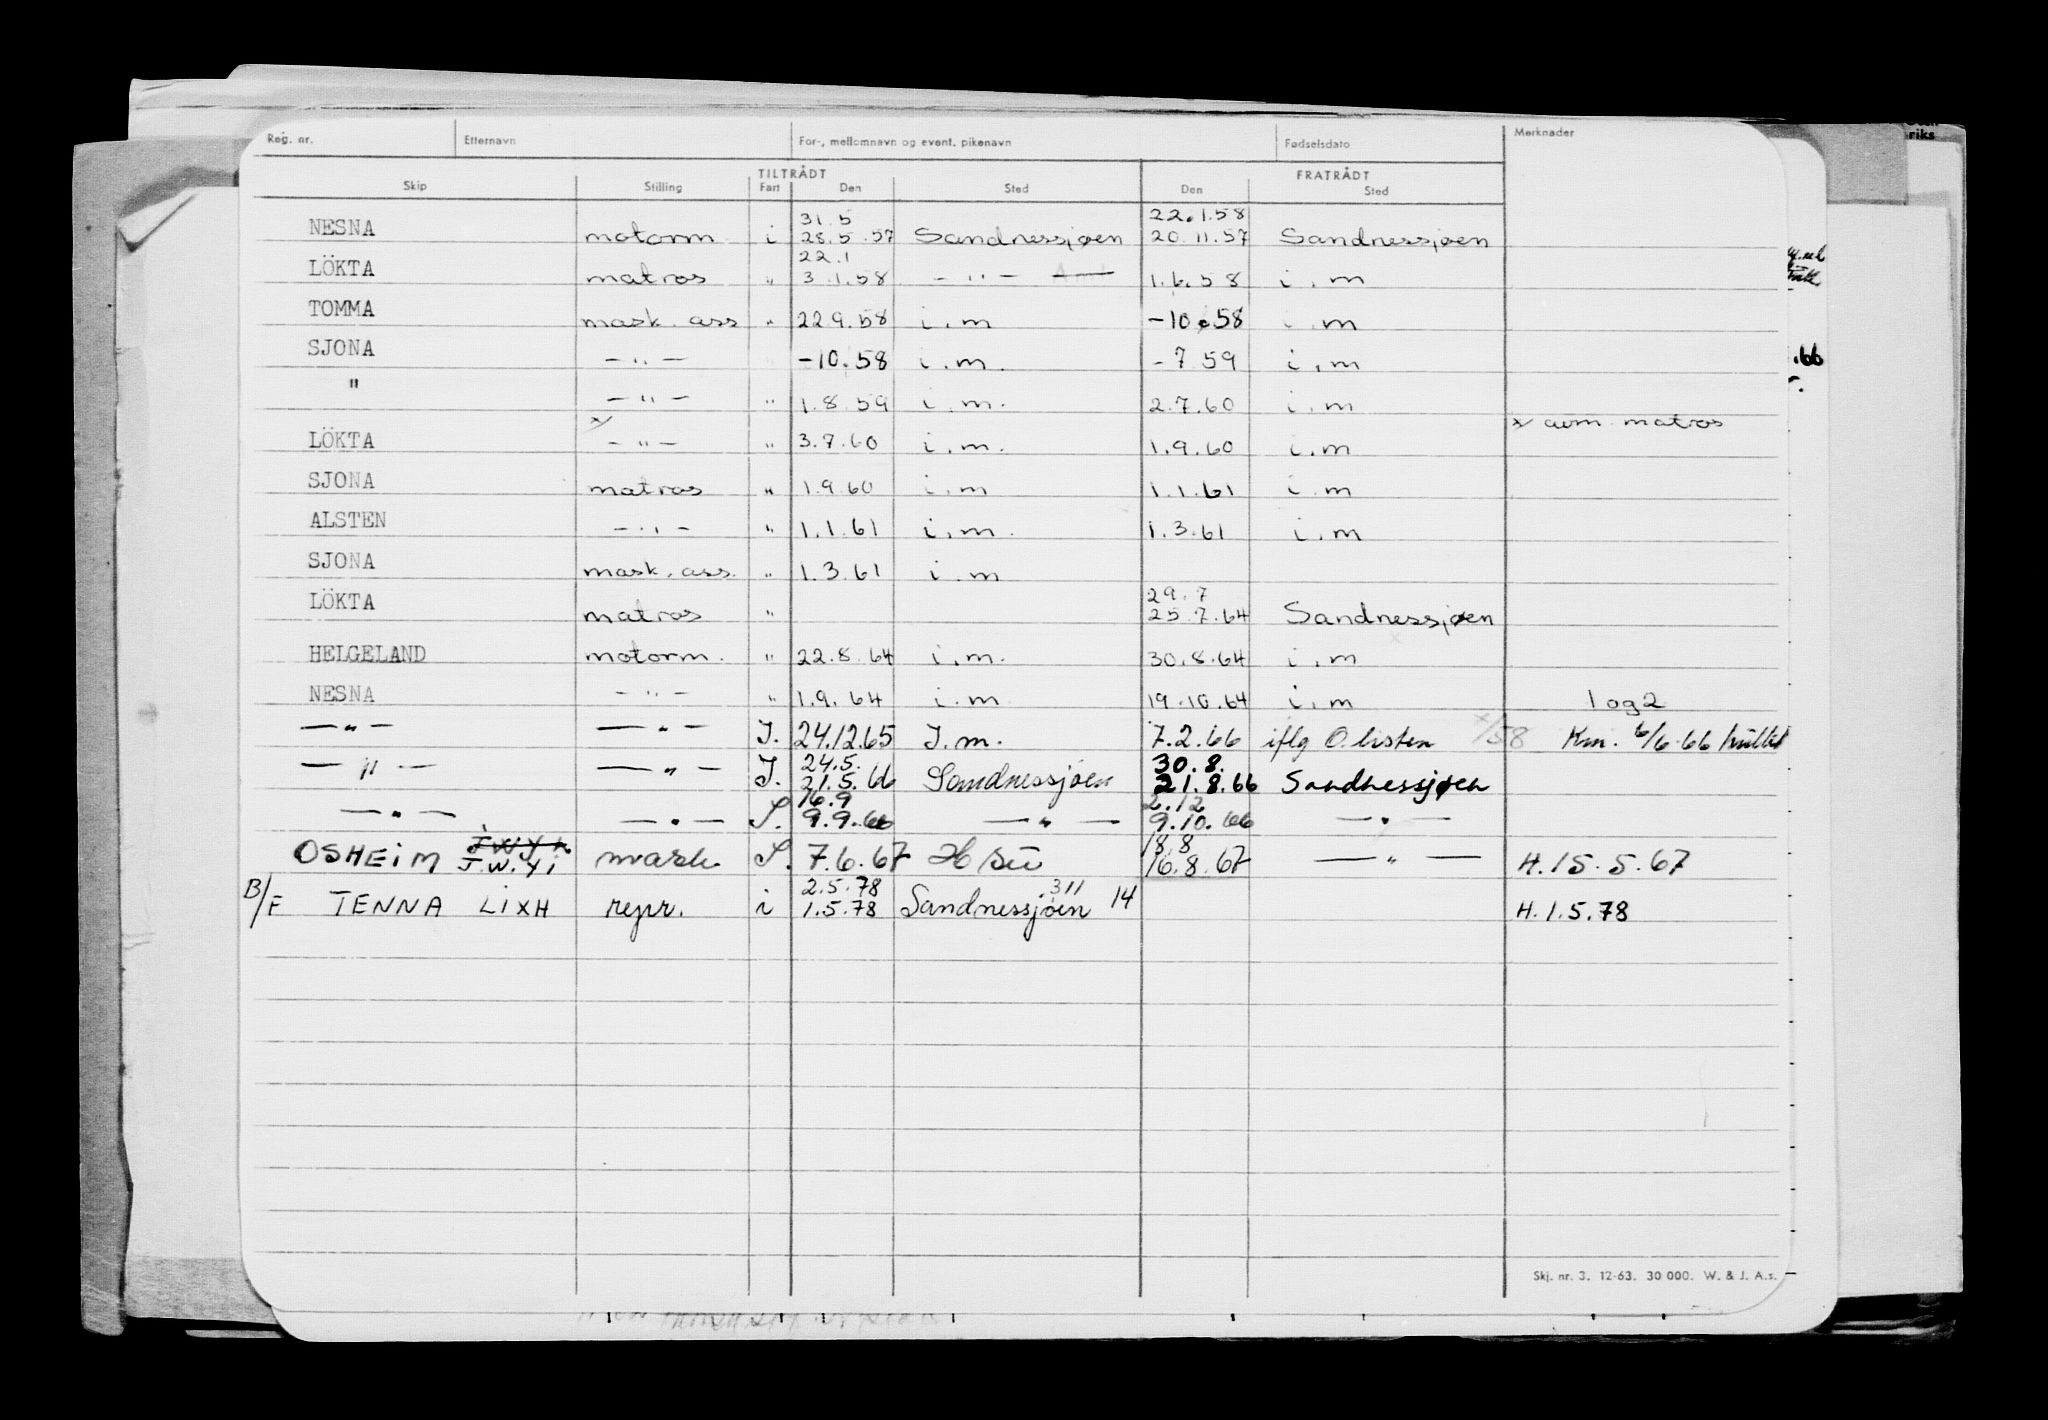 Reg. nr. Etternavn For-, mellomnavn og event. pikenavn Fødselsdato Merknader
TILTRÅDT FRATRÅDT
Skip Stilling Fart Den Sted Den Sted
31.5 22.1.58
NESNA motorm i 28.5.57 Sandnessjøen 20.11.57 Sandnessjøen
22.1
LÖKTA matros " 3.1.58 - " - 1.6.58 i.m
TOMMA mask.ass " 22.9.58 i.m -10.58 i.m
SJONA - " - " -10.58 i.m. -7 59 i.m
" - " - " 1.8.59 i.m. 2.7.60 i.m
x/ x/ avm. matros
LÖKTA - " - " 3.7.60 i.m. 1.9.60 i.m
SJONA matros " 1.9.60 i.m 1.1.61 i.m
ALSTEN - " - " 1.1.61 i.m. 1.3.61 i.m
SJONA mask.ass. " 1.3.61 i.m
29.7
LÖKTA matros " 25.7.64 Sandnessjøen
HELGELAND motorm. " 22.8.64 i.m. 30.8.64 i.m
NESNA - " - " 1.9.64 i.m 19.10.64 i.m 1 og 2
— " — — " — I. 24.12.65 I.m. 7.2.66 iflg O.listen x/58 Km. 6/6-66
24.5. 30.8.
— " — — " — I. 21.5.66 Sandnessjøen 21.8.66 Sandnessjøen
16.9 2.12
— " — — " — I. 9.9.66 — " — 9.10.66 — " —
18.8
OSHEIM J.W.Y.i mask I. 7.6.67 16.8.67 — " — H.15.5.67
2.5.78 311
B/F TENNA LIXH repr. i 1.5.78 Sandnessjøen 14 H.1.5.78
Skj. nr. 3. 12-63. 30 000. W. & J. A.s.
riks
.66